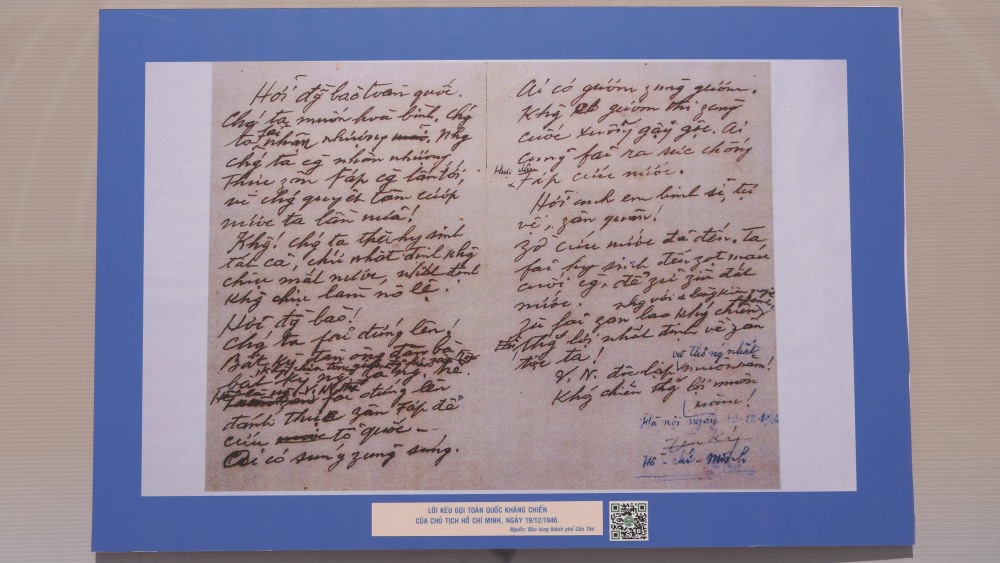 Hỡi đg̀ bào toàn quốc.
Chǵ ta muốn hoà bình, chǵ
ta fải nhân nhượng. Nhg
chǵ ta cg̀ nhân nhượng
thực zân Fáp cg̀ lấn tới,
vì chǵ quyết tâm cướp
nước ta lần nữa!
Khg! chǵ ta thà hy sinh
tất cả, chứ nhất định khg
chịu mất nước, nhất định
khg chịu làm nô lệ.
Hỡi đg̀ bào!
Chǵ ta fải đứng lên!
Bất kỳ đàn ông đàn bà
bất kỳ ng̀ zà ng̀ trẻ.
fải đứng lên
đánh thực zân Fáp để
cứu tổ quốc -
Ai có súng zùng súng.
Ai có gươm zùng gươm.
Khg có gươm thì zùng
cuốc xuổng gậy gộc. Ai
cũng fải ra sức chống
thực dân
Fáp cứu nước.
Hỡi anh em binh sĩ, tự
vệ, zân quân!
Zờ cứu nước đã đến. Ta
fải hy sinh đến zọt máu
cuối cg̀, để zữ zìn đất
nước.
Zù fải zan lao khǵ chiến
nhg với 1 lòng kiên quyết
thắg lợi nhất định về zân
tộc ta!
V. N. độc lập và thống nhất muôn năm!
Khǵ chiến thắg lợi muôn
năm!
Hà nội ngày 19-12-1946
Hồ-chí-Minh
LỜI KÊU GỌI TOÀN QUỐC KHÁNG CHIẾN
CỦA CHỦ TỊCH HỒ CHÍ MINH, NGÀY 19/12/1946.
Nguồn: Bảo tàng thành phố Cần Thơ